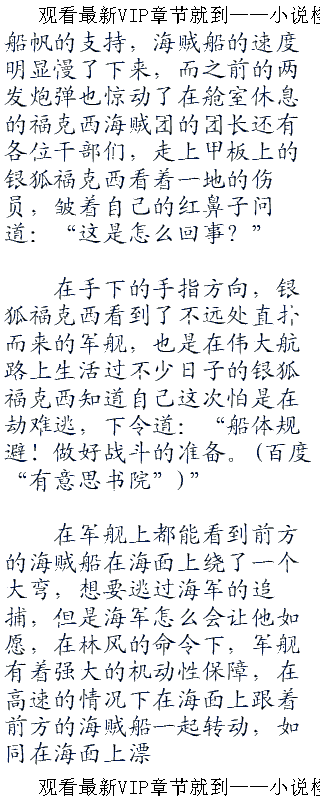 观看最新VIP章节就到——小说
船帆的支持，海贼船的速度
明显慢了下来，而之前的两
发炮弹也惊动了在舱室休息
的福克西海贼团的团长还有
各位干部们，走上甲板上的
银狐福克西看着一地的伤
员，皱着自己的红鼻子问
道：“这是怎么回事？”
在手下的手指方向，银
狐福克西看到了不远处直扑
而来的军舰，也是在伟大航
路上生活过不少日子的银狐
福克西知道自己这次怕是在
劫难逃，下令道：“船体规
避！做好战斗的准备。(百度
“有意思书院”)”
在军舰上都能看到前方
的海贼船在海面上绕了一个
大弯，想要逃过海军的追
捕，但是海军怎么会让他如
愿，在林风的命令下，军舰
有着强大的机动性保障，在
高速的情况下在海面上跟着
前方的海贼船一起转动，如
同在海面上漂
观看最新VIP章节就到——小说